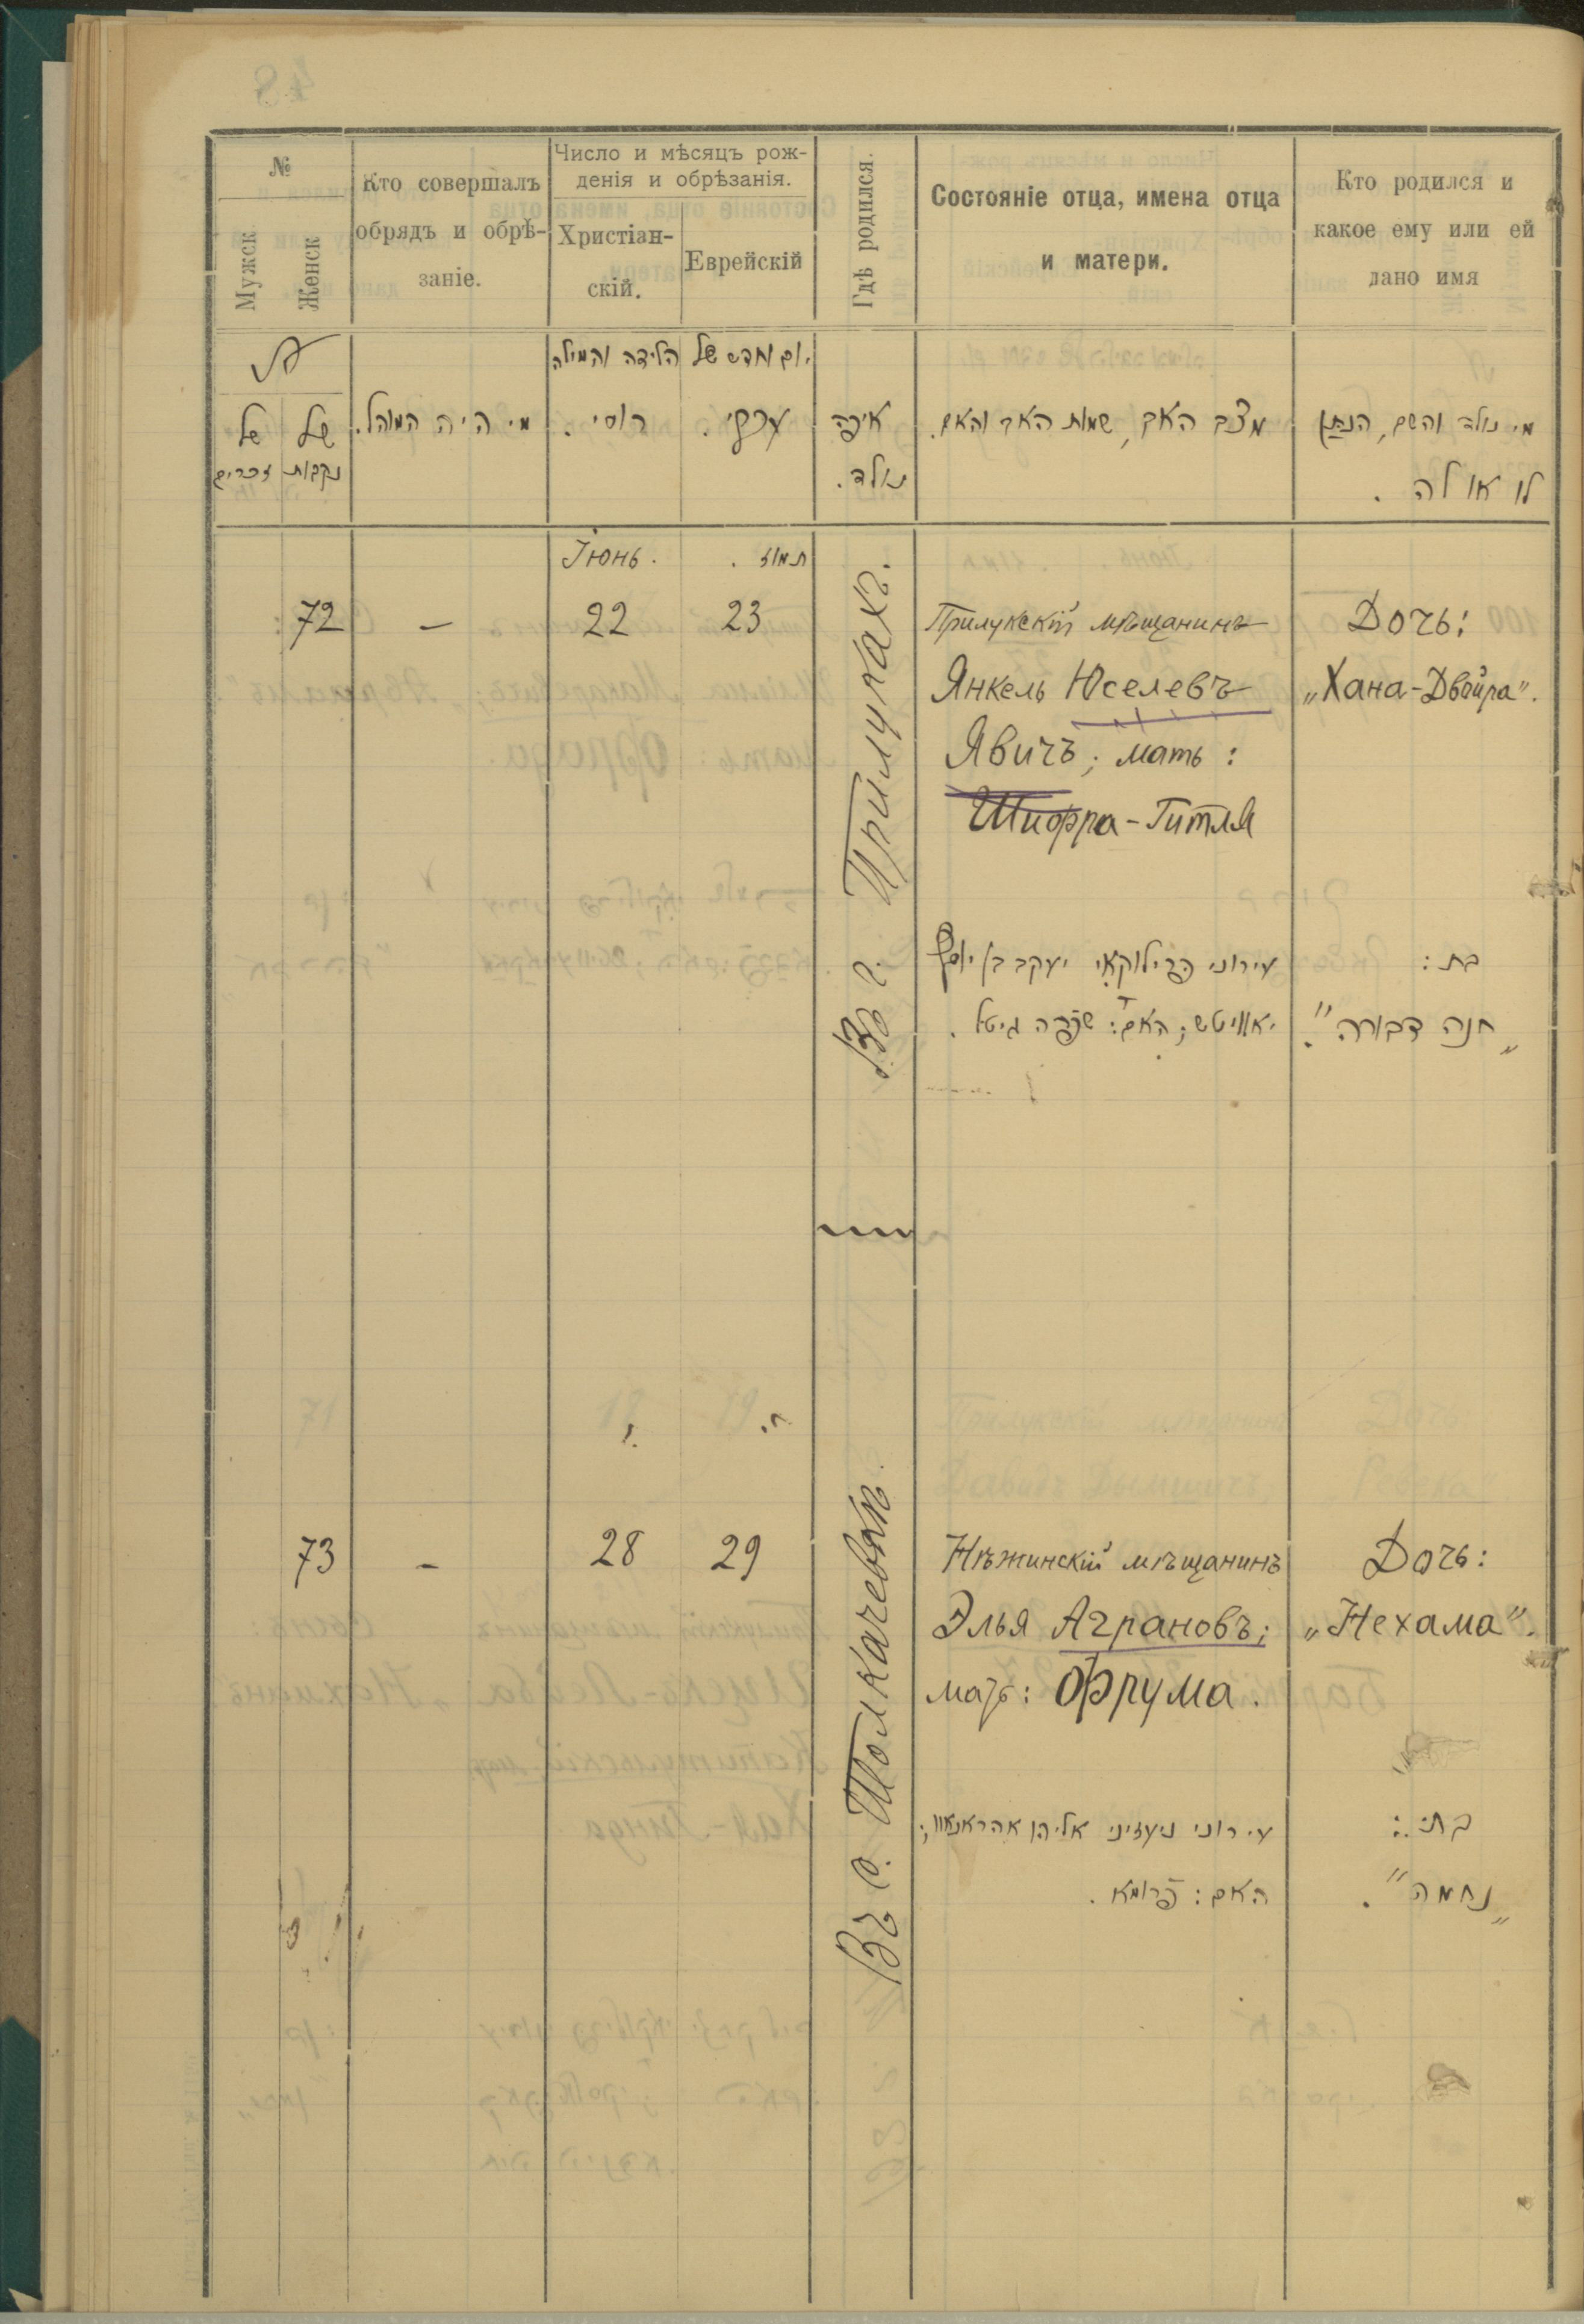 №
Мужск
Женск
Кто совершалъ
обрядъ и обрѣ-
заніе.
Число и мѣсяцъ рож-
денія и обрѣзанія.
Христіан-
скій.
Еврейскій
Гдѣ родился.
Состояніе отца, имена отца
и матери.
Кто родился и
какое ему или ей
дано имя
של זכרים
של נקבות
מי היה המוהל.
יום וחדש של הלידה והמילה
רוסי.
עברי.
איפה נולד.
מצב האב, שמות האב והאם.
מי נולד והשם, הנתן
לו או לה.
Іюнь.
תמוז.
72
—
22
23
Въ г. Прилукахъ.
Прилукскій мѣщанинъ
Янкель Юселевъ
Явичъ; мать:
Шифра-Гитля
Дочь:
„Хана-Двойра".
עירוני פרילוקאי יעקב בן יוסף
יאוויטש; האם: שפרה גיטל.
בת:
„חנה דבורה".
73
—
28
29
Въ с. Полкачевкѣ.
Нѣжинскій мѣщанинъ
Элья Аграновъ;
мать: Фрума.
Дочь:
„Нехама".
עירוני ניעזיני אליהו אהראנאוו;
האם: פרומא.
בת:
„נחמה".